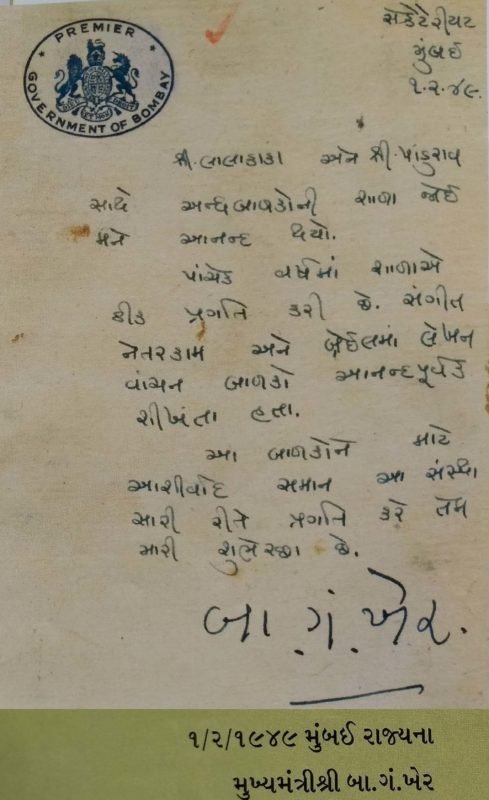 PREMIER
GOVERNMENT OF BOMBAY
સેક્રેટેરીયટ
મુંબઈ
૧.૨.૪૯.
શ્રી. લાલાકાકા અને શ્રી. પાંડુરાવ
સાથે અન્ધબાળકોની શાળા જોઈ
મને આનન્દ થયો.
પાંચેક વર્ષમાં શાળાએ
ઠીક પ્રગતિ કરી છે. સંગીત
નેતરકામ અને બ્રેઈલમાં લેખન
વાંચન બાળકો આનન્દપૂર્વક
શીખતા હતા.
આ બાળકોને માટે
આશીર્વાદ સમાન આ સંસ્થા
સારી રીતે પ્રગતિ કરે તેમ
મારી શુભેચ્છા છે.
બા.ગં.ખેર.
૧/૨/૧૯૪૯ મુંબઈ રાજ્યના
મુખ્યમંત્રીશ્રી બા.ગં.ખેર